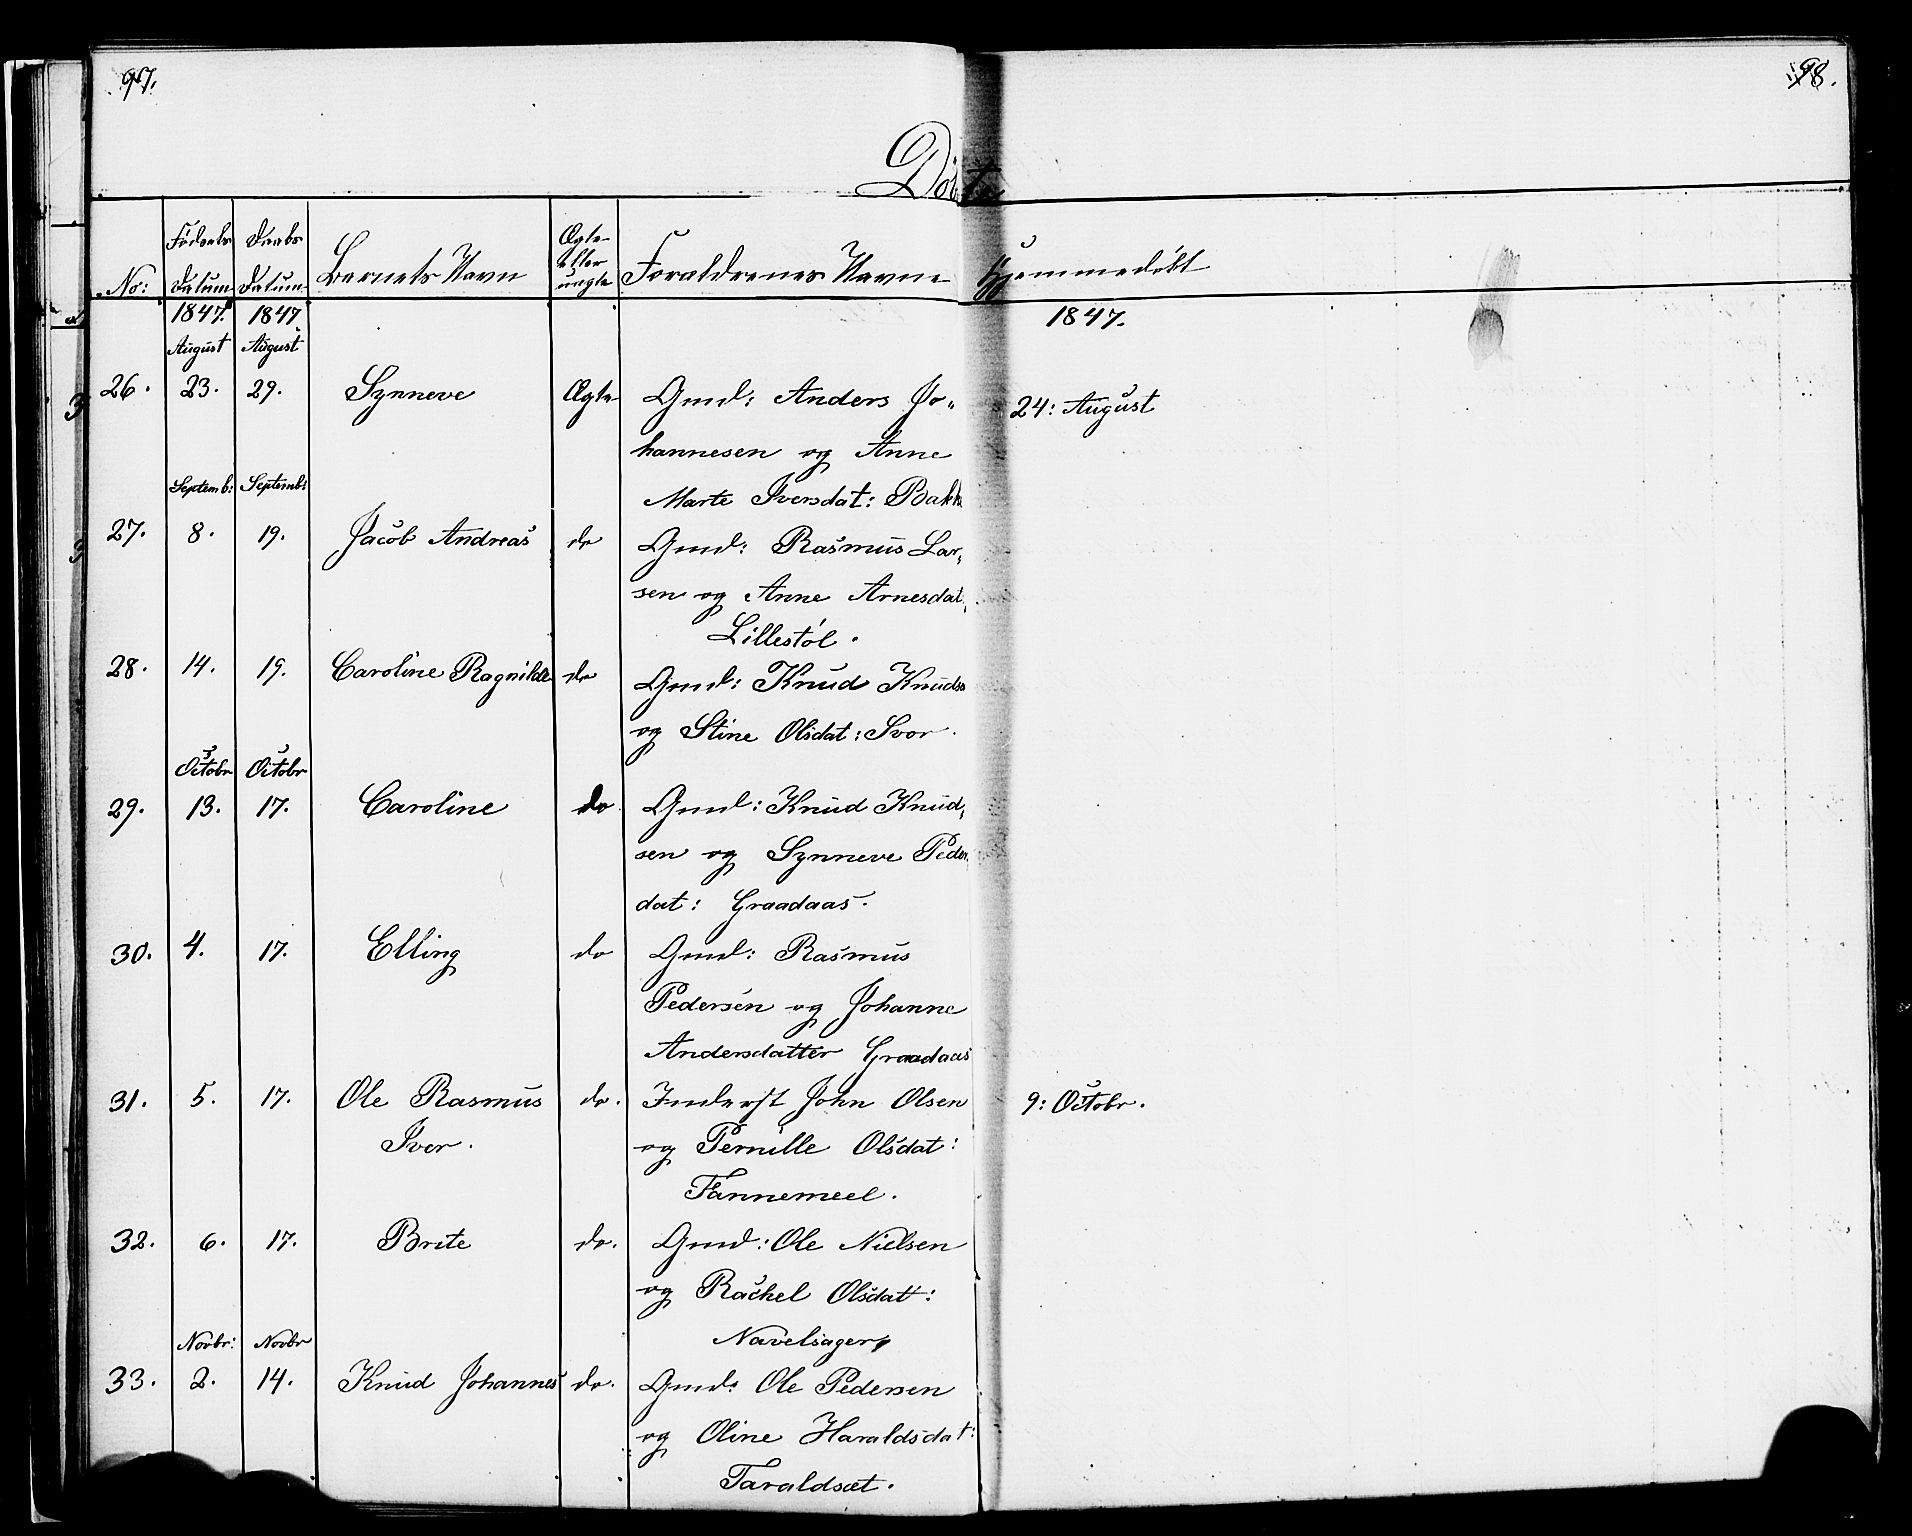 97.
98.
Døbte
No: Fødsels Datum Daabs Datum Barnets Navn Ægte eller uægte Forældrenes Navne Hjemmedøbt
1847. 1847 1847.
August August
26. 23. 29. Synneve Ægte Gmd: Anders Jo„ 24: August
hannesen og Anne
Septemb: Septemb:
Marte Iversdat: Bakk
27. 8. 19. Jacob Andreas do Gmd: Rasmus Lar„
sen og Anne Arnesdat,
Lillestøl.
28. 14. 19. Caroline Ragnilde do Gmd: Knud Knuds
og Stine Olsdat: Svor.
Octobr Octobr
29. 13. 17. Caroline do Gmd: Knud Knud„
sen og Synneve Peder
dat: Graadaas.
30. 4. 17. Elling do Gmd: Rasmus
Pedersen og Johanne
Andersdatter Graadaas
31. 5. 17. Ole Rasmus do. Inderst John Olsen 9: Octobr.
Iver. og Pernille Olsdat:
Fannemeel.
32. 6. 17. Brite do. Gmd: Ole Nielsen
og Rachel Olsdatt:
Novbr: Novbr Navelsager
33. 2. 14. Knud Johannes do. Gmd: Ole Pedersen
og Oline Haraldsdat:
Taraldsæt.